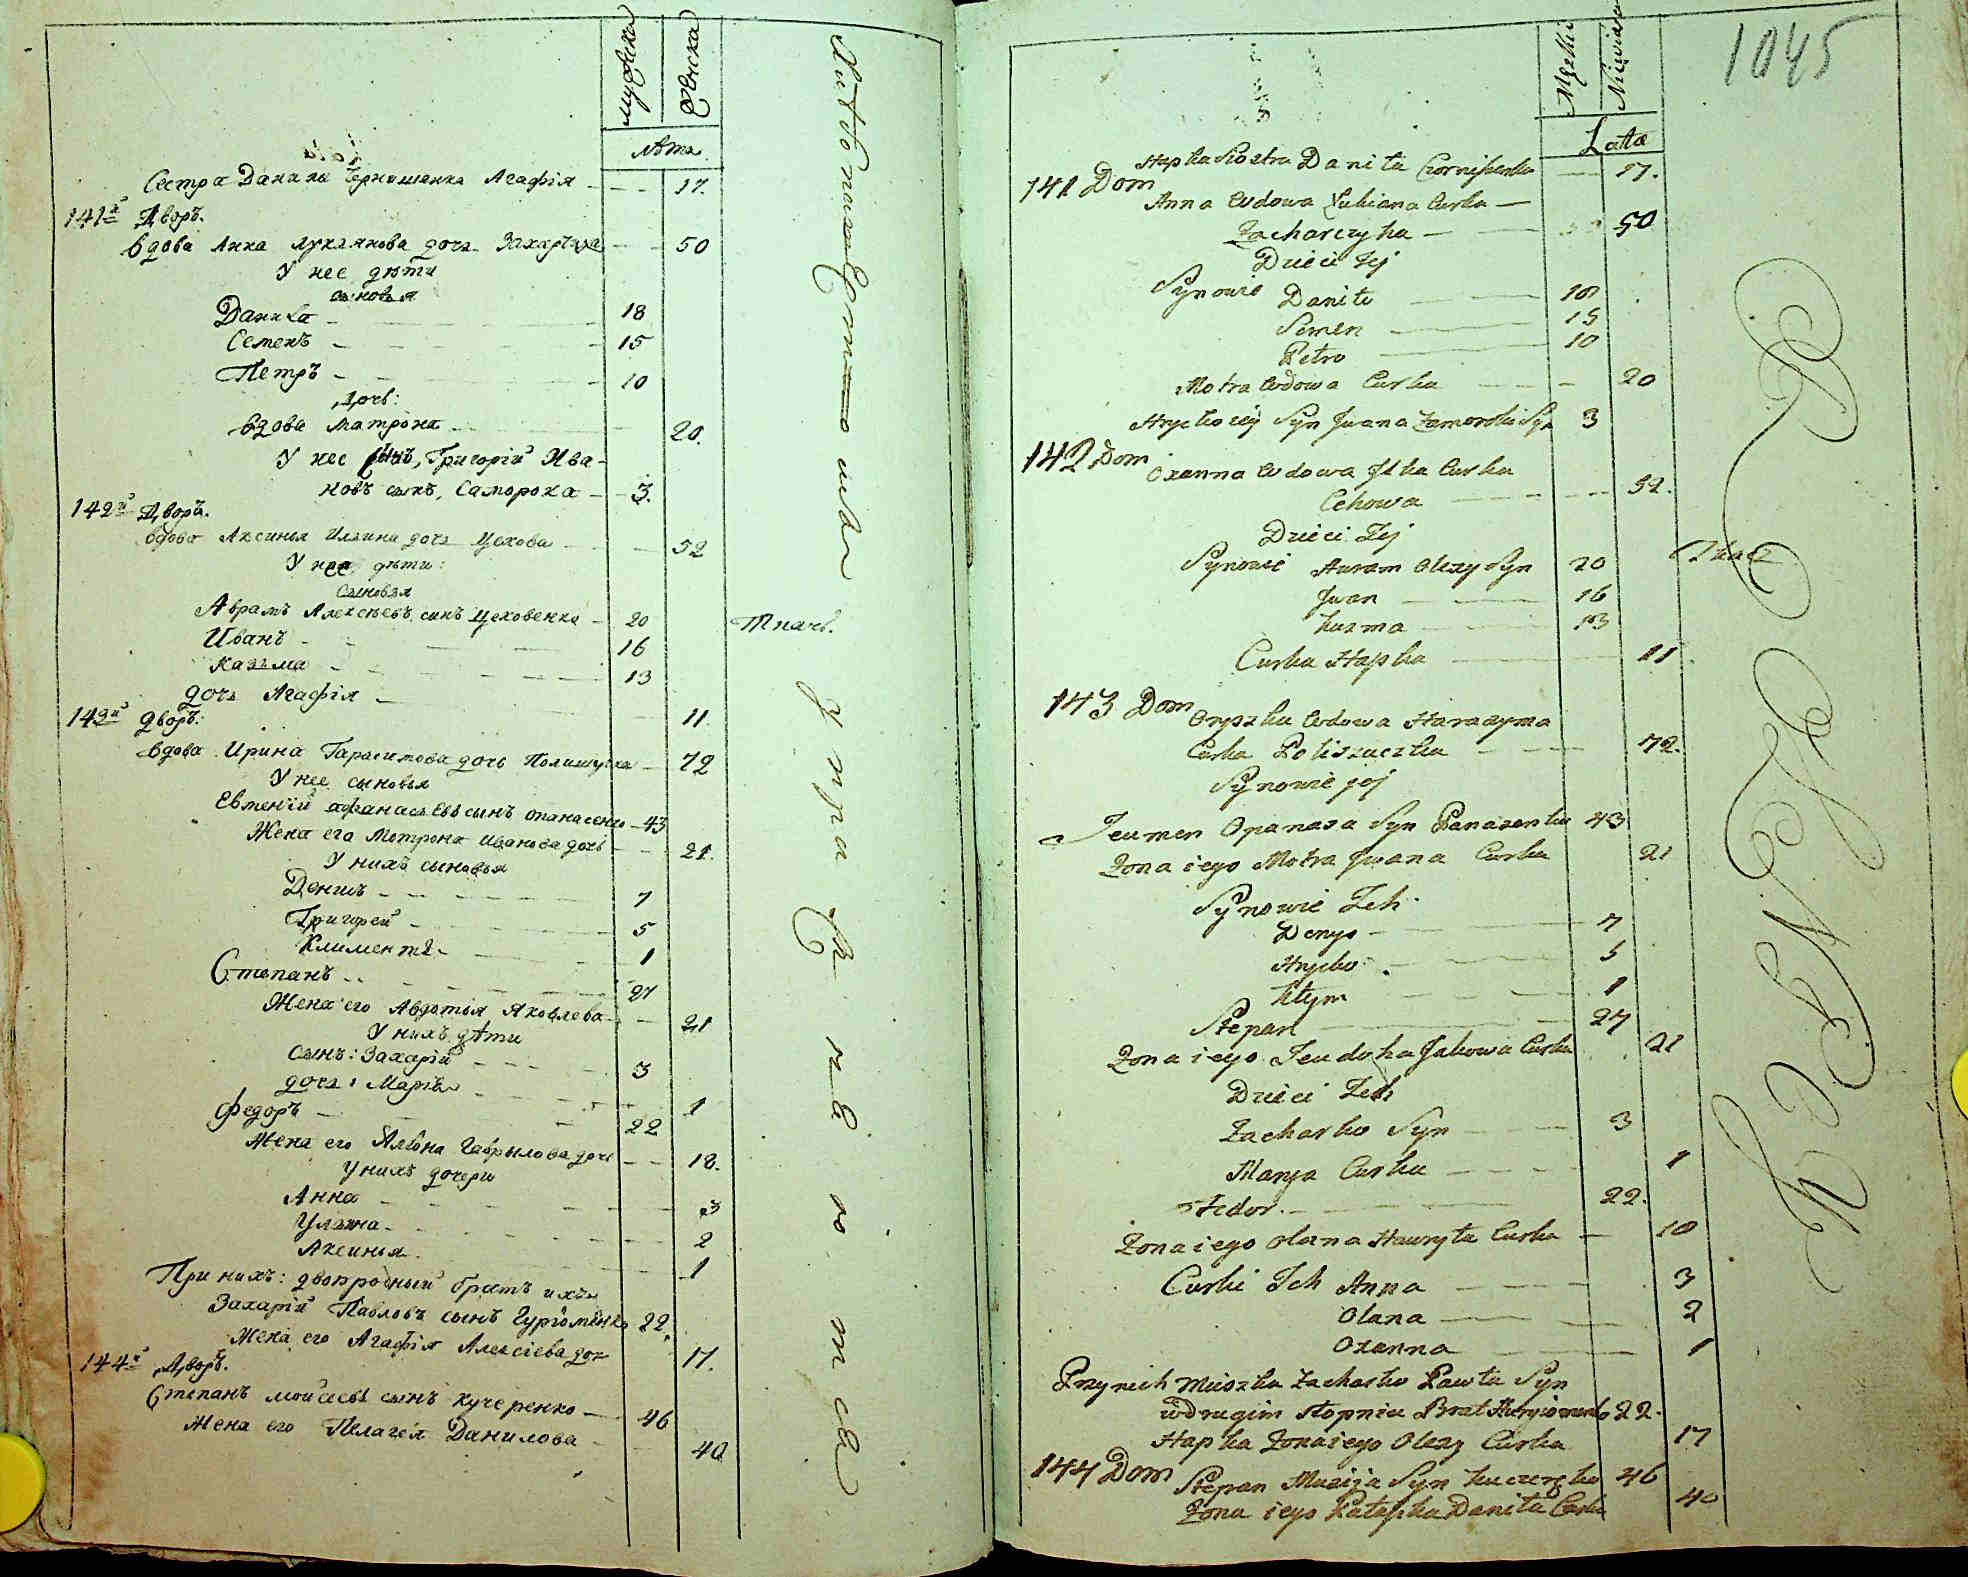 мужска
женска
лѣта
Сестра Данилы Чернишенка Агафія 17.
141й Дворъ.
вдова Анна Лукіянова дочь Захарчиха 50
У нее дѣти
сыновья
Данила 18
Семенъ 15
Петръ 10
дочь:
вдова Матрона 20.
У нее сынъ, Григорій Ива-
новъ сынъ, Саморока 3.
142й Дворъ.
вдова Аксинья Ильина дочь Цехова 52
У нее дѣти:
Сыновья
Аврамъ Алексѣевъ сынъ Цеховенко 20 Ткачъ.
Иванъ 16
Казьма 13
дочь Агафія 11
143й дворъ:
вдова Ирина Гарасимова дочь Полищучка 72
У нее сыновья
Евтеній афанасьевъ сынъ опанасенко 43
Жена его Мотрона Иванова дочь 21.
У нихъ сыновья
Денисъ 7
Григорей 5
Климентъ 1
Степанъ 27
Жена его Авдотья Яковлева 21
У нихъ дѣти
Сынъ: Захарій 3
дочь: Марія 1
Федоръ 22
Жена его Алiона Гаврылова дочь 18.
У нихъ дочери
Анна 3
Улiяна 2
Аксинья 1
При нихъ: двопродный братъ ихъ
Захарій Павловъ сынъ Гуріоменко 22.
Жена его Агафія Алексіева доч 17.
144й Дворъ.
Степанъ моисеевъ сынъ Кучеренко 46
Жена его Пелагея Данилова 40
1045
Męzkie
Niewiast
Latta
Hapka Siostra Daniła Czerniszenka 17.
141 Dom
Anna Wdowa Łukiana Curka
Zacharczyha 50
Dzieci Jej
Synowie Daniło 18
Semen 15
Petro 10
Motra Wdowa Curka 20
Hrycko iey Syn Jwana Zamoroki Syn 3
142 Dom
Oxanna Wdowa Jlka Curka
Cehowa 52.
Dzieci Jej
Synowie Awram Olexy Syn 20 Tkacz
Jwan 16
Kuzma 13
Curka Hapka 11
143 Dom
Oryszka Wdowa Harasyma
Curka Poliszuczka 72.
Synowie jej
Jeumen Opanasa Syn Panasenko 43
Żona iego Motra Jwana Curka 21
Synowie Jch
Denys 7
Hrycko 5
Kłym 1
Stepan 27
Żona iego Jeudoha Jakowa Curka 21
Dzieci Jch
Zacharko Syn 3
Marya Curka 1
Fedor 22.
Żona iego Olana Hawryła Curka 18
Curki Jch Anna 3
Olana 2
Oxanna 1
Przy nich Miszka Zacharko Pawła Syn
w drugim stopniu Brat Huryiomenko 22.
Hapka Żona iego Olexy Curka 17
144 Dom
Stepan Musija Syn Kuczeręko 46
Żona iego Pałażka Daniła Curka 40